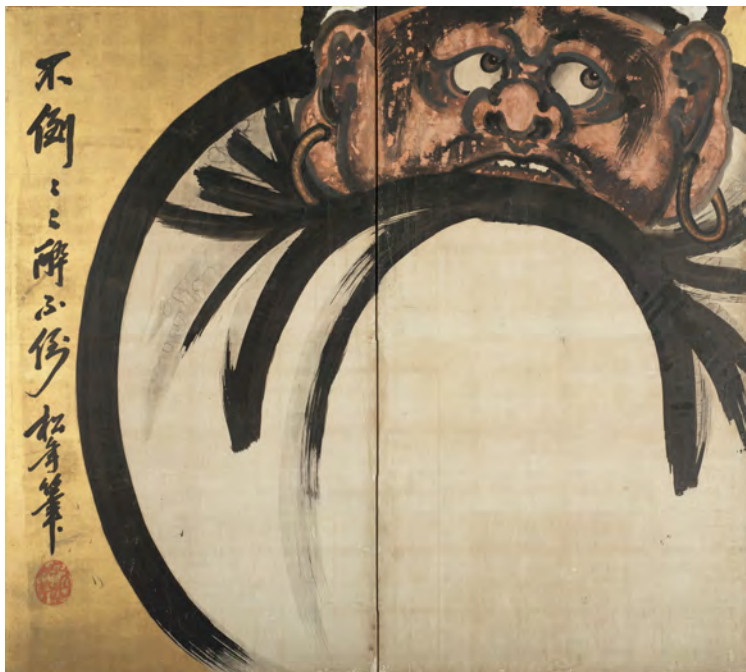 不倒〻〻酔不倒松年筆